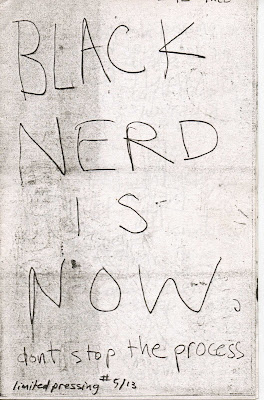 BLACK
NERD
IS
NOW.
dont stop the process
limited pressing #5/13